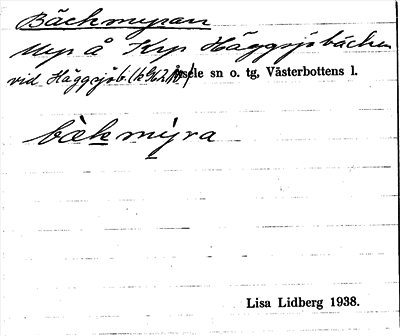 Bäckmyran
Myr å Krp Häggsjöbäcken
vid Häggsjöb. Åsele sn o. tg, Västerbottens l.
bèkmýra
Lisa Lidberg 1938.